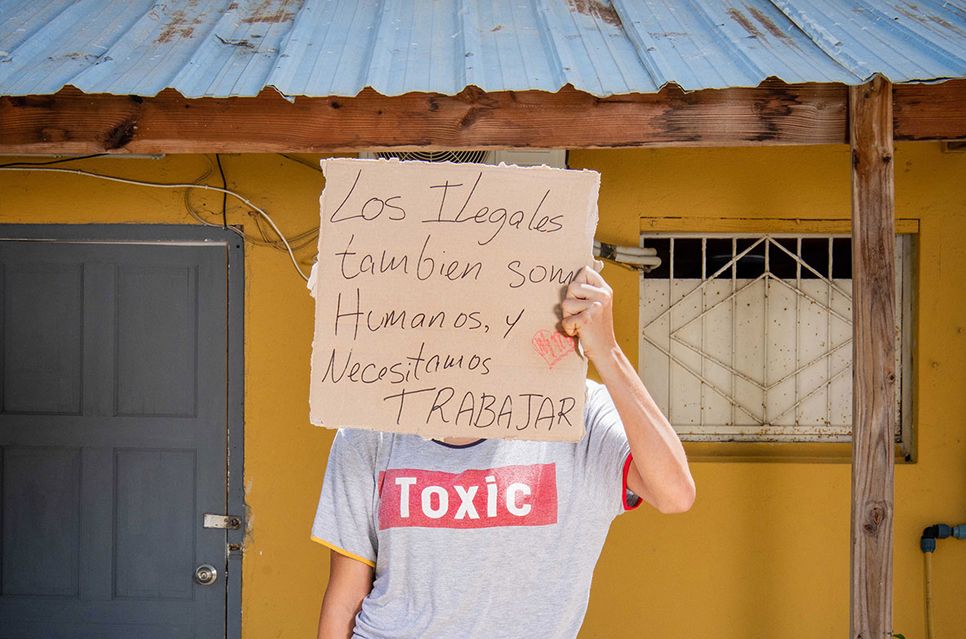 Los Ilegales
tambien som
Humanos, y
Necesitamos
TRABAJAR
Toxic